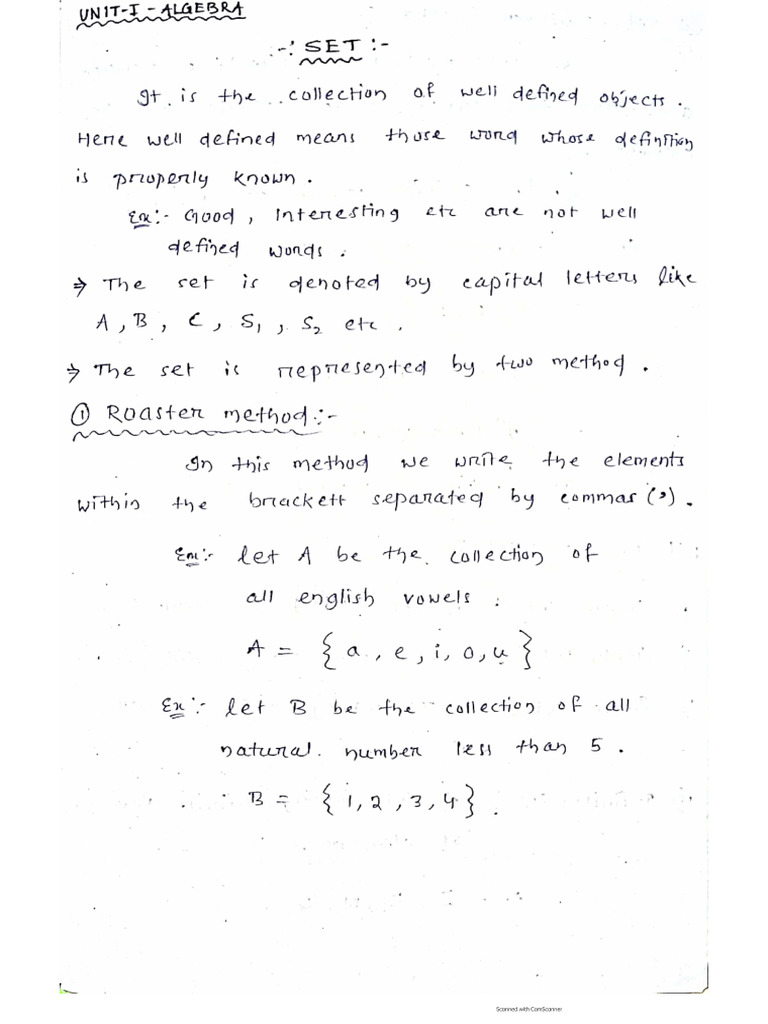 UNIT-I - ALGEBRA
-: SET :-
It is the collection of well defined objects.
Here well defined means those word whose definition
is properly known.
Ex:- Good, Interesting etc are not well
defined words.
⇒ The set is denoted by capital letters like
A, B, C, S₁, S₂ etc.
⇒ The set is represented by two method.
① Roaster method:-
In this method we write the elements
within the brackett separated by commas (,).
Ex:- let A be the collection of
all english vowels.
A = {a, e, i, o, u}
Ex:- let B be the collection of all
natural number less than 5.
B = {1, 2, 3, 4}.
Scanned with CamScanner